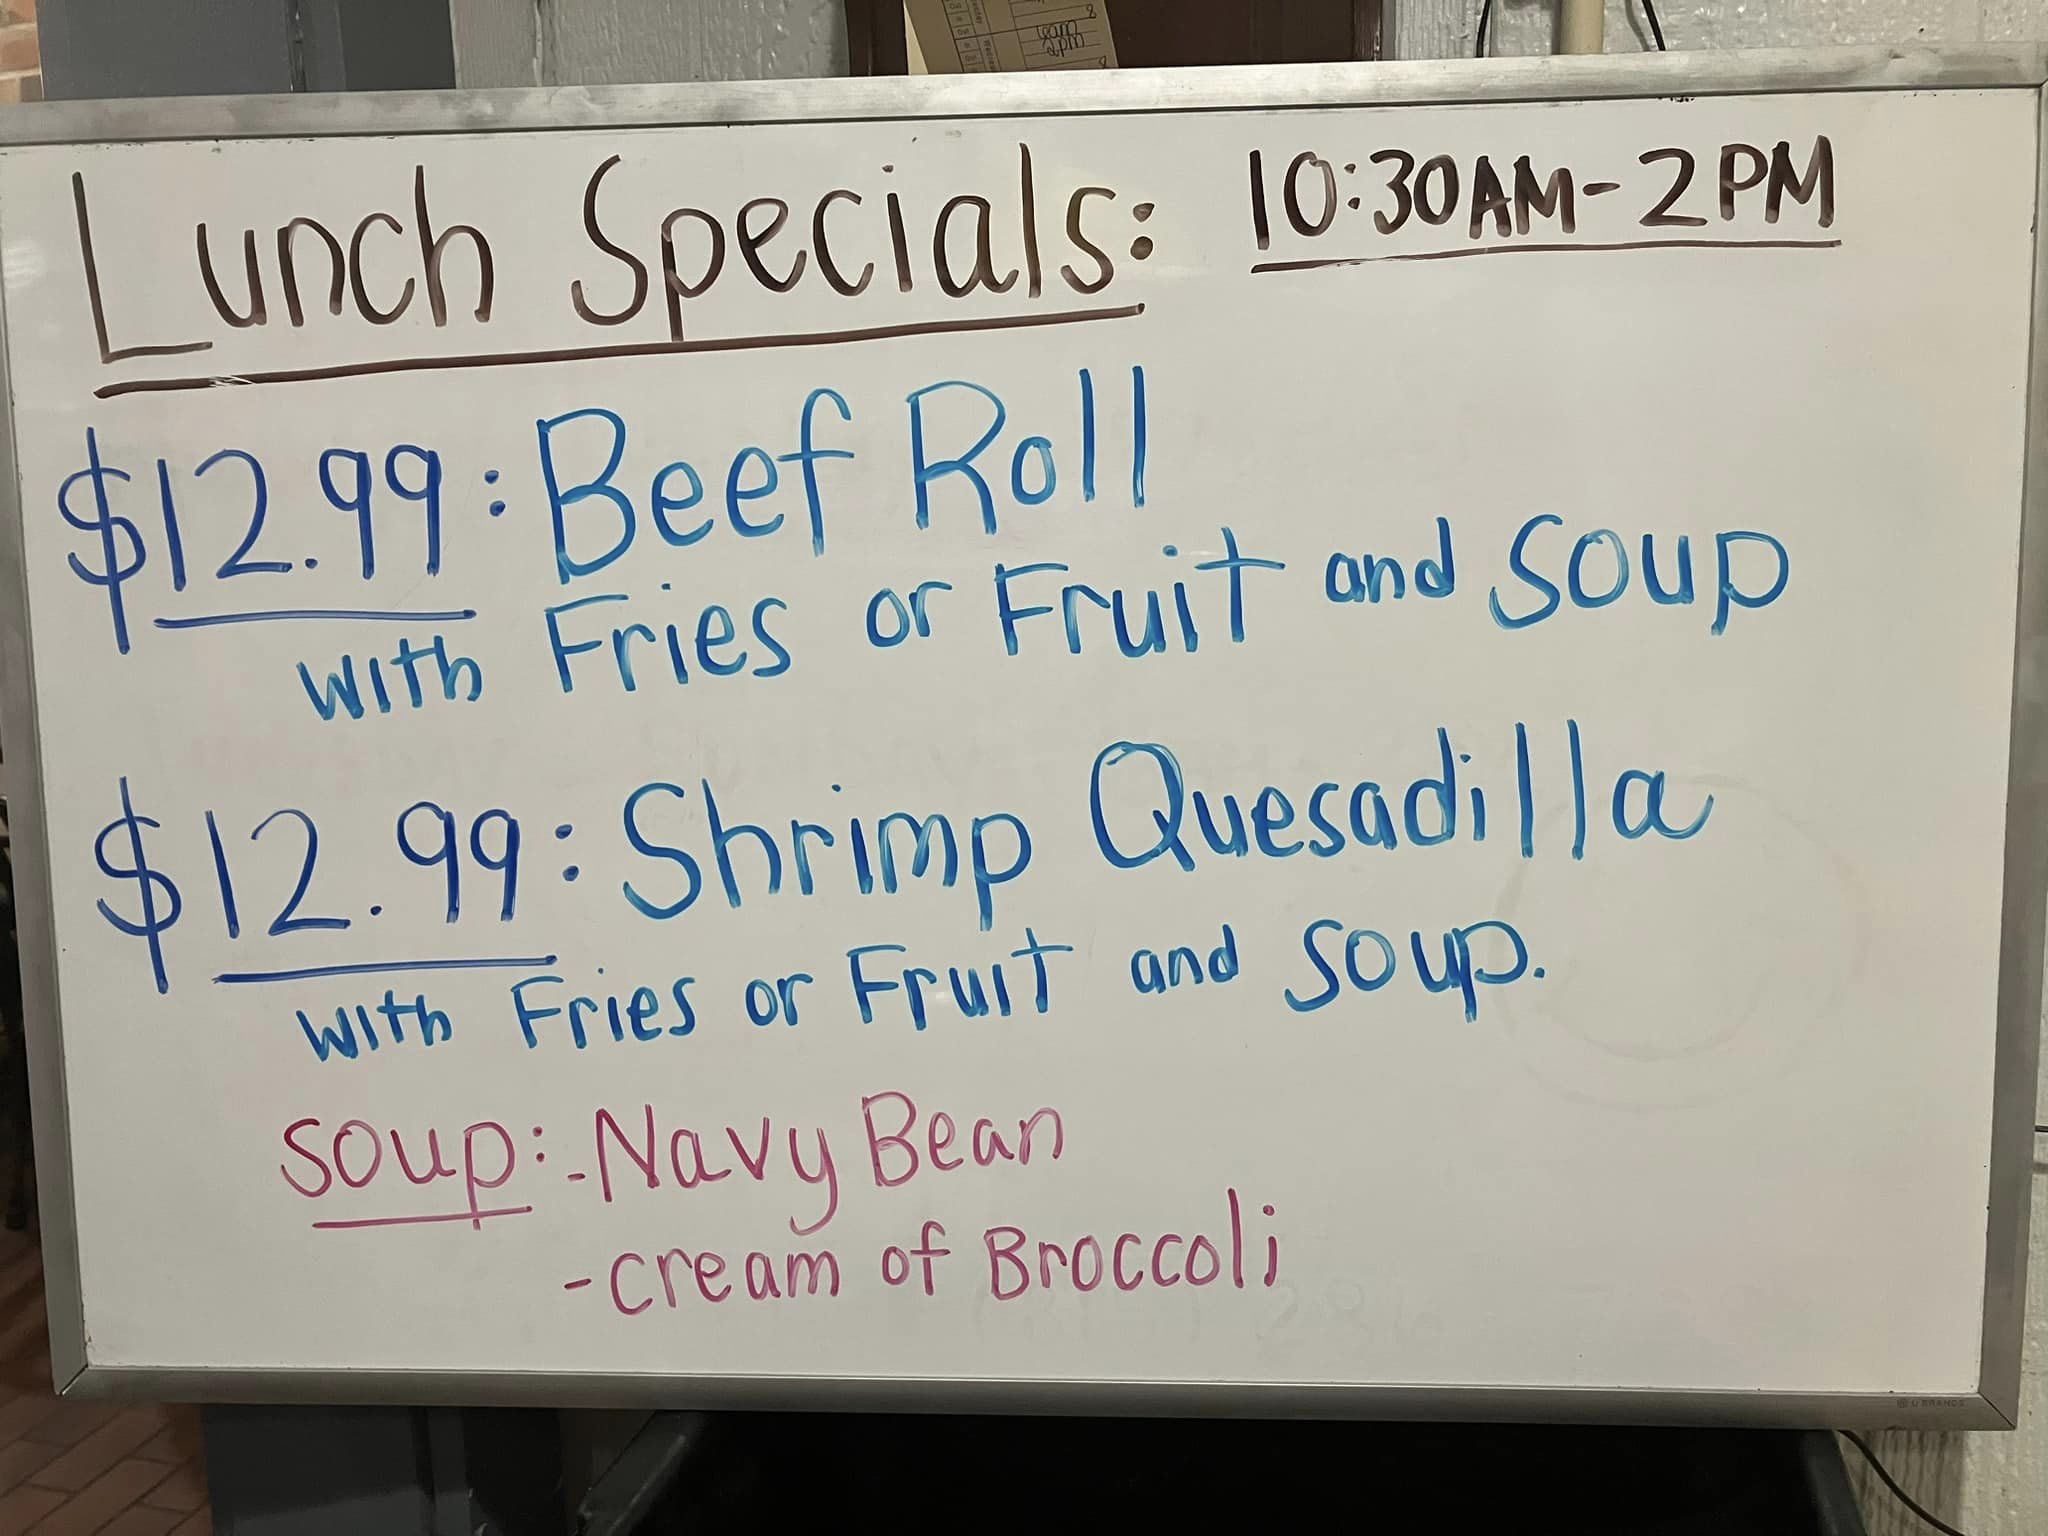 Lunch Specials: 10:30AM-2PM
$12.99: Beef Roll
with Fries or Fruit and Soup
$12.99: Shrimp Quesadilla
with Fries or Fruit and Soup.
Soup: -Navy Bean
-cream of Broccoli
U BRANDS